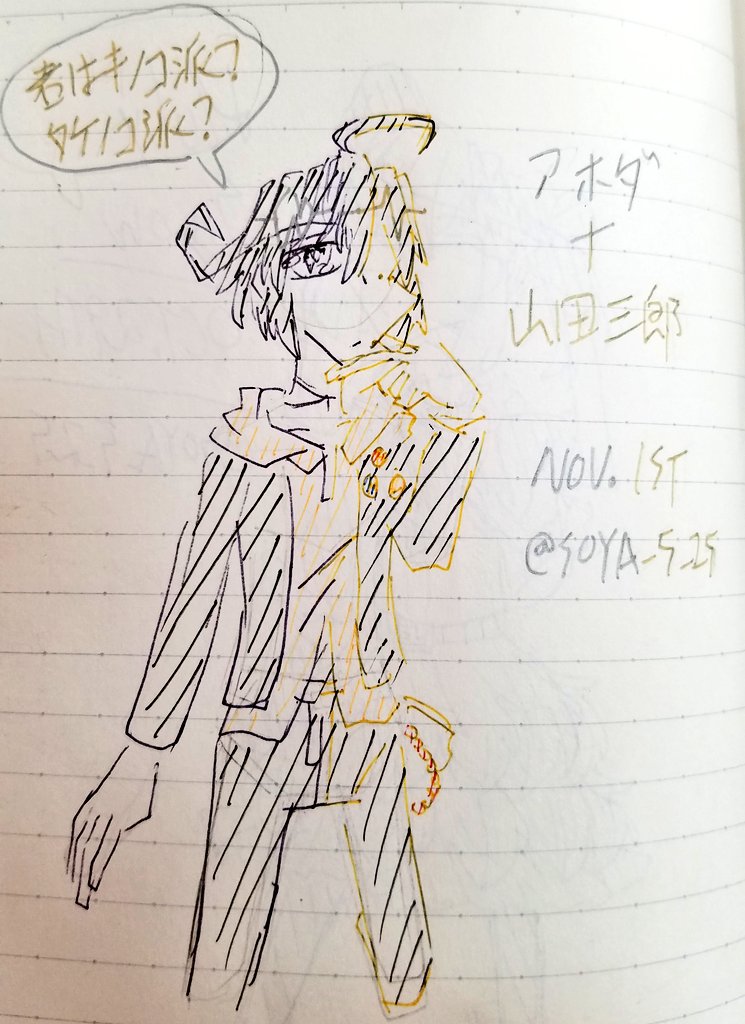 君はキノコ派?
タケノコ派?
アホダ
+
山田三郎
NOV. 1ST
@SOYA_5_25